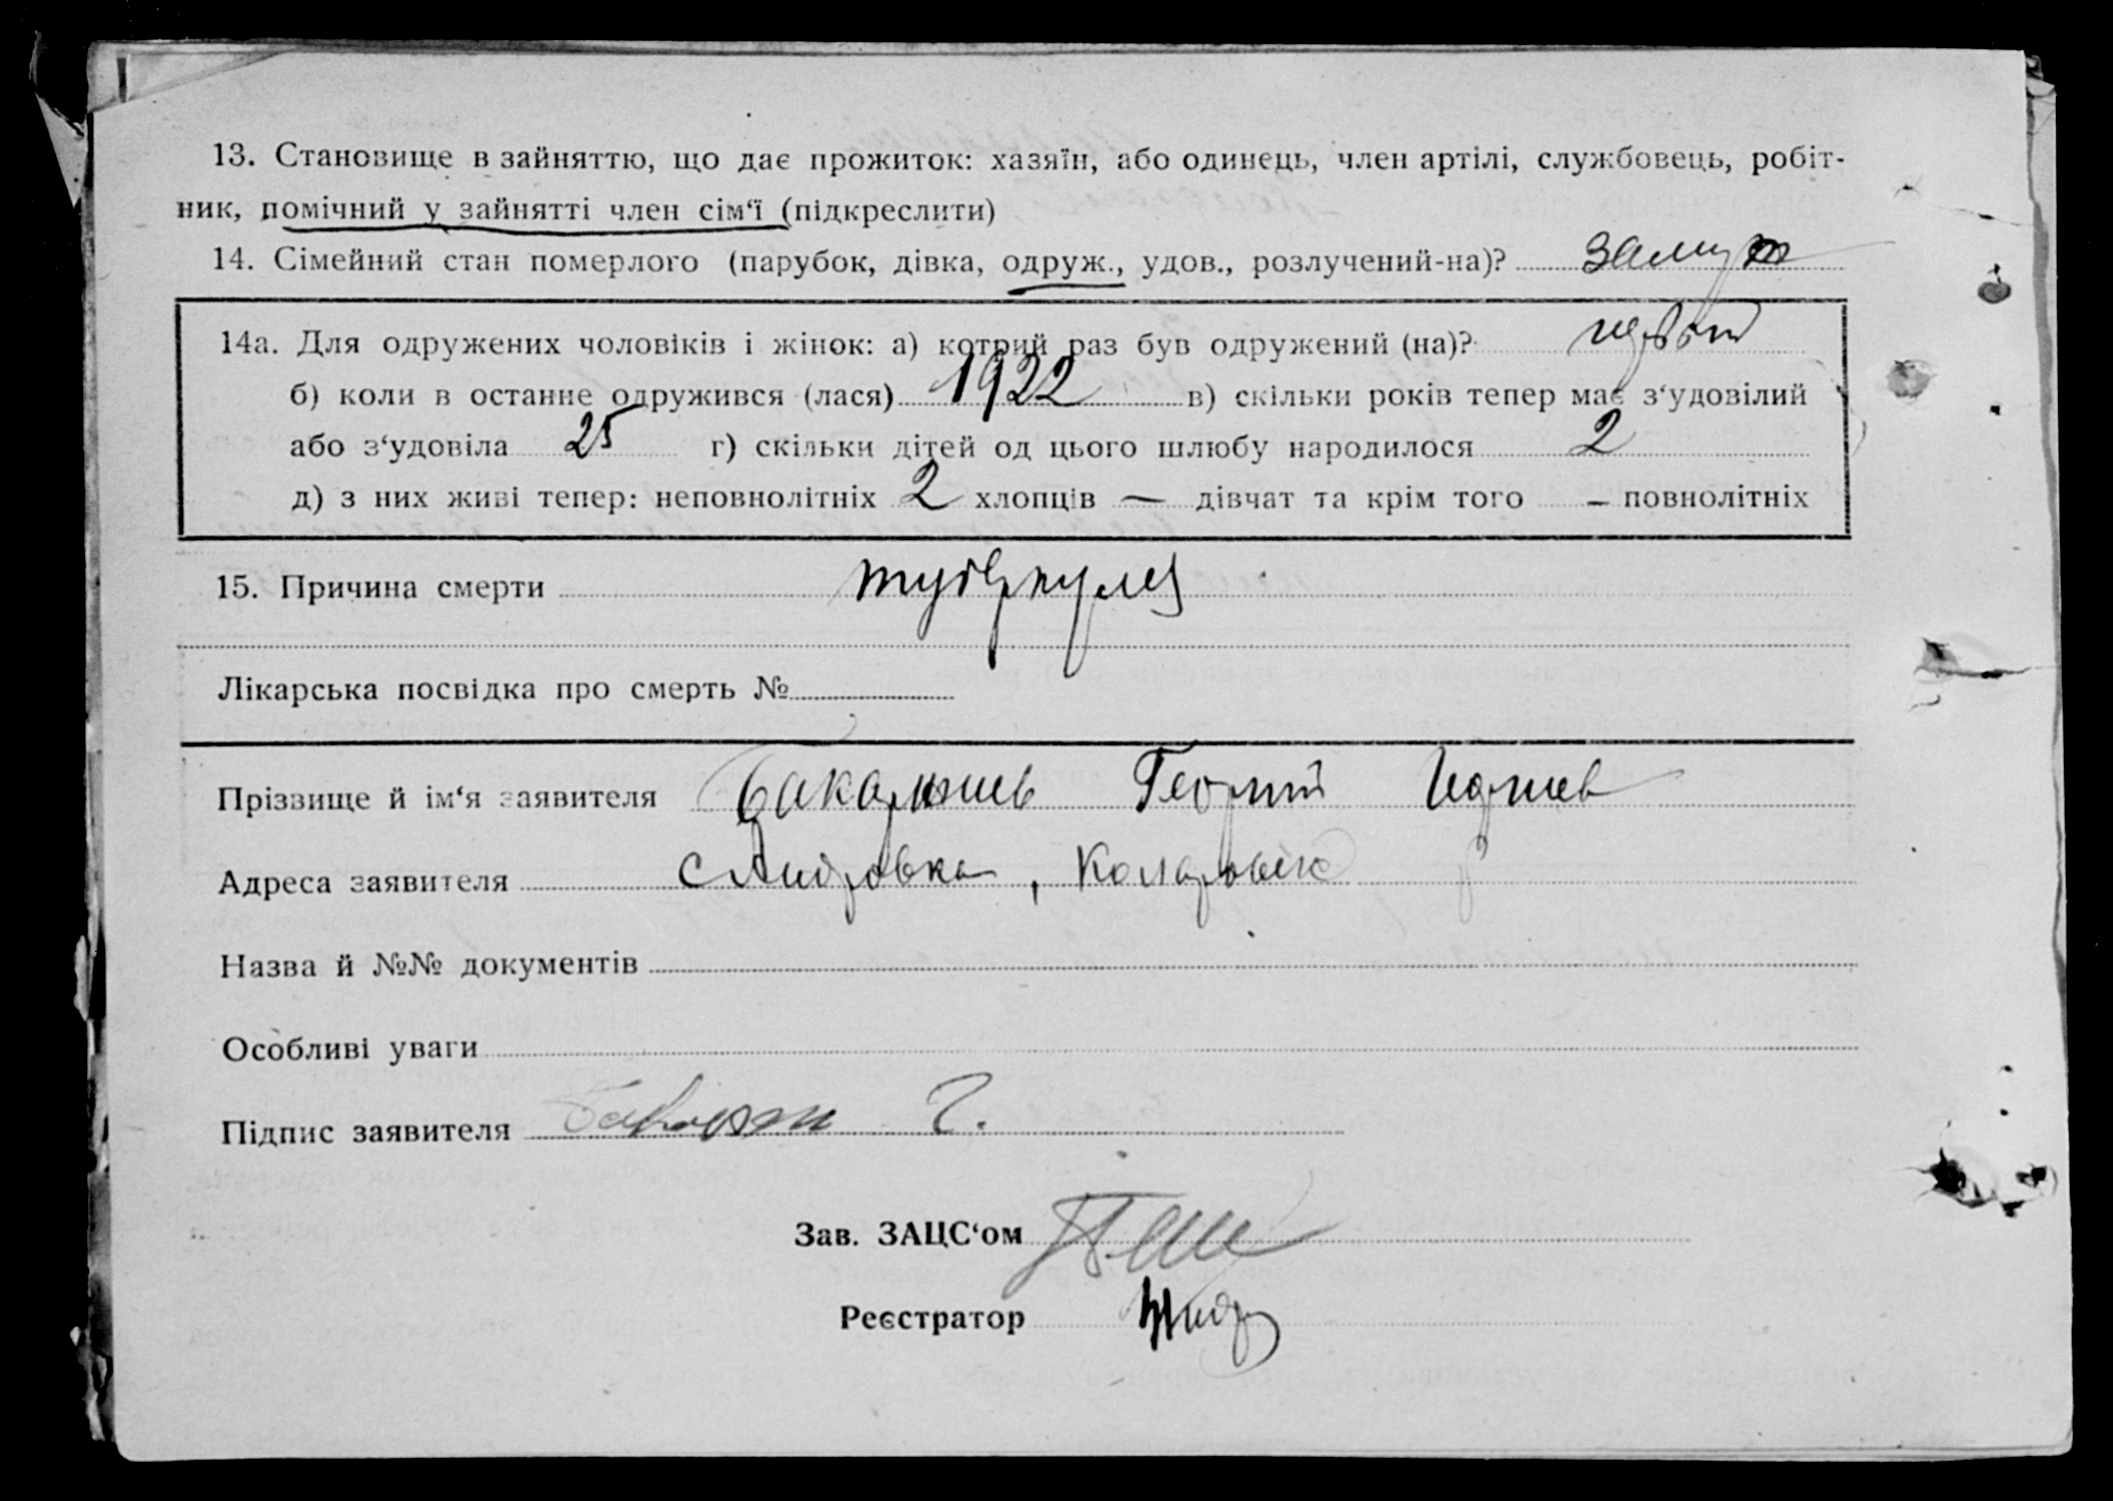 13. Становище в зайняттю, що дає прожиток: хазяїн, або одинець, член артілі, службовець, робіт-
ник, помічний у зайнятті член сім‘ї (підкреслити)
14. Сімейний стан померлого (парубок, дівка, одруж., удов., розлучений-на)? замуж
14а. Для одружених чоловіків і жінок: а) котрий раз був одружений (на)? первый
б) коли в останне одружився (лася) 1922 в) скільки років тепер має з‘удовілий
або з‘удовіла 25 г) скільки дітей од цього шлюбу народилося 2
д) з них живі тепер: неповнолітніх 2 хлопців — дівчат та крім того – повнолітніх
15. Причина смерти туберкулез
Лікарська посвідка про смерть №
Прізвище й ім‘я заявителя Георгий
Адреса заявителя с Андровка,
Назва й №№ документів
Особливі уваги
Підпис заявителя Г.
Зав. ЗАЦС‘ом
Реєстратор